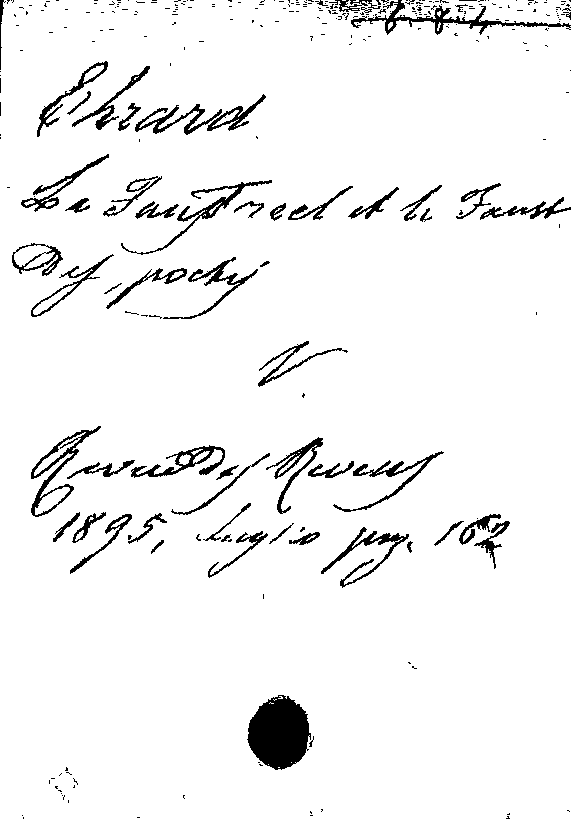 6.8.4
Ehrard
Le Faust reel et le Faust
Des poetes
V.
Revue Des Revues
1895, luglio pag. 162